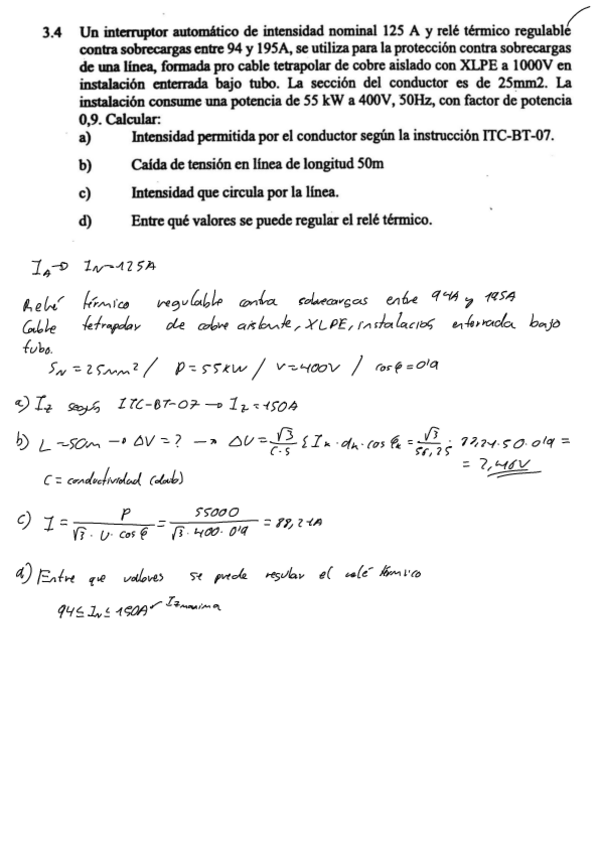 3.4 Un interruptor automático de intensidad nominal 125 A y relé térmico regulable
contra sobrecargas entre 94 y 195A, se utiliza para la protección contra sobrecargas
de una línea, formada pro cable tetrapolar de cobre aislado con XLPE a 1000V en
instalación enterrada bajo tubo. La sección del conductor es de 25mm2. La
instalación consume una potencia de 55 kW a 400V, 50Hz, con factor de potencia
0,9. Calcular:
a) Intensidad permitida por el conductor según la instrucción ITC-BT-07.
b) Caída de tensión en línea de longitud 50m
c) Intensidad que circula por la línea.
d) Entre qué valores se puede regular el relé térmico.
I_A → I_N = 125A
Relé térmico regulable contra sobrecargas entre 94A y 195A
Cable tetrapolar de cobre aislante, XLPE, instalación enterrada bajo
tubo.
S_N = 25mm² / P = 55kW / V = 400V / cos φ = 0'9
a) I_z según ITC-BT-07 → I_z = 150A
b) L = 50m → ΔV = ? → ΔU = √3/(C·S) Σ I_k · d_k · cos φ_k = √3/(56,25) · 88,24 · 50 · 0'9 =
= 2,46V
C = conductividad (dato)
c) I = P/(√3 · U · cos φ) = 55000/(√3 · 400 · 0'9) = 88,21A
d) Entre que valores se puede regular el relé térmico
94 ≤ I_N ≤ 150A I_z maxima